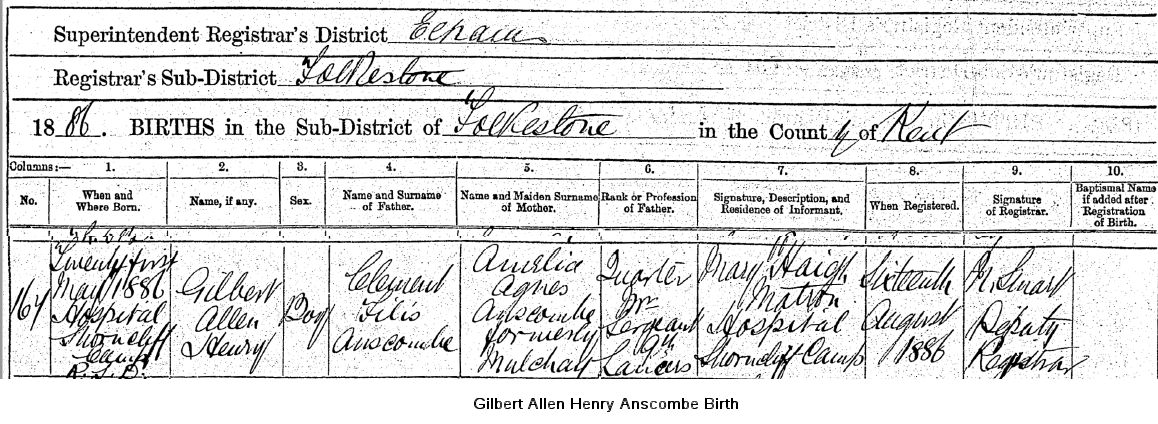 Superintendent Registrar's District Elham
Registrar's Sub-District Folkestone
1886. BIRTHS in the Sub-District of Folkestone in the County of Kent
Columns:— 1. 2. 3. 4. 5. 6. 7. 8. 9. 10.
No. When and Where Born. Name, if any. Sex. Name and Surname of Father. Name and Maiden Surname of Mother. Rank or Profession of Father. Signature, Description, and Residence of Informant. When Registered. Signature of Registrar. Baptismal Name if added after Registration of Birth.
164
Twenty first
May 1886
Hospital
Shorncliff
Camp
R.S.D.
Gilbert
Allen
Henry
Boy
Clement
Anscombe
Amelia
Agnes
Anscombe
formerly
Mulchay
Quarter
Mr
Sergeant
9th
Lancers
Mary Haigh
Matron
Hospital
Shorncliff Camp
Sixteenth
August
1886
Stuart
Deputy
Registrar
Gilbert Allen Henry Anscombe Birth